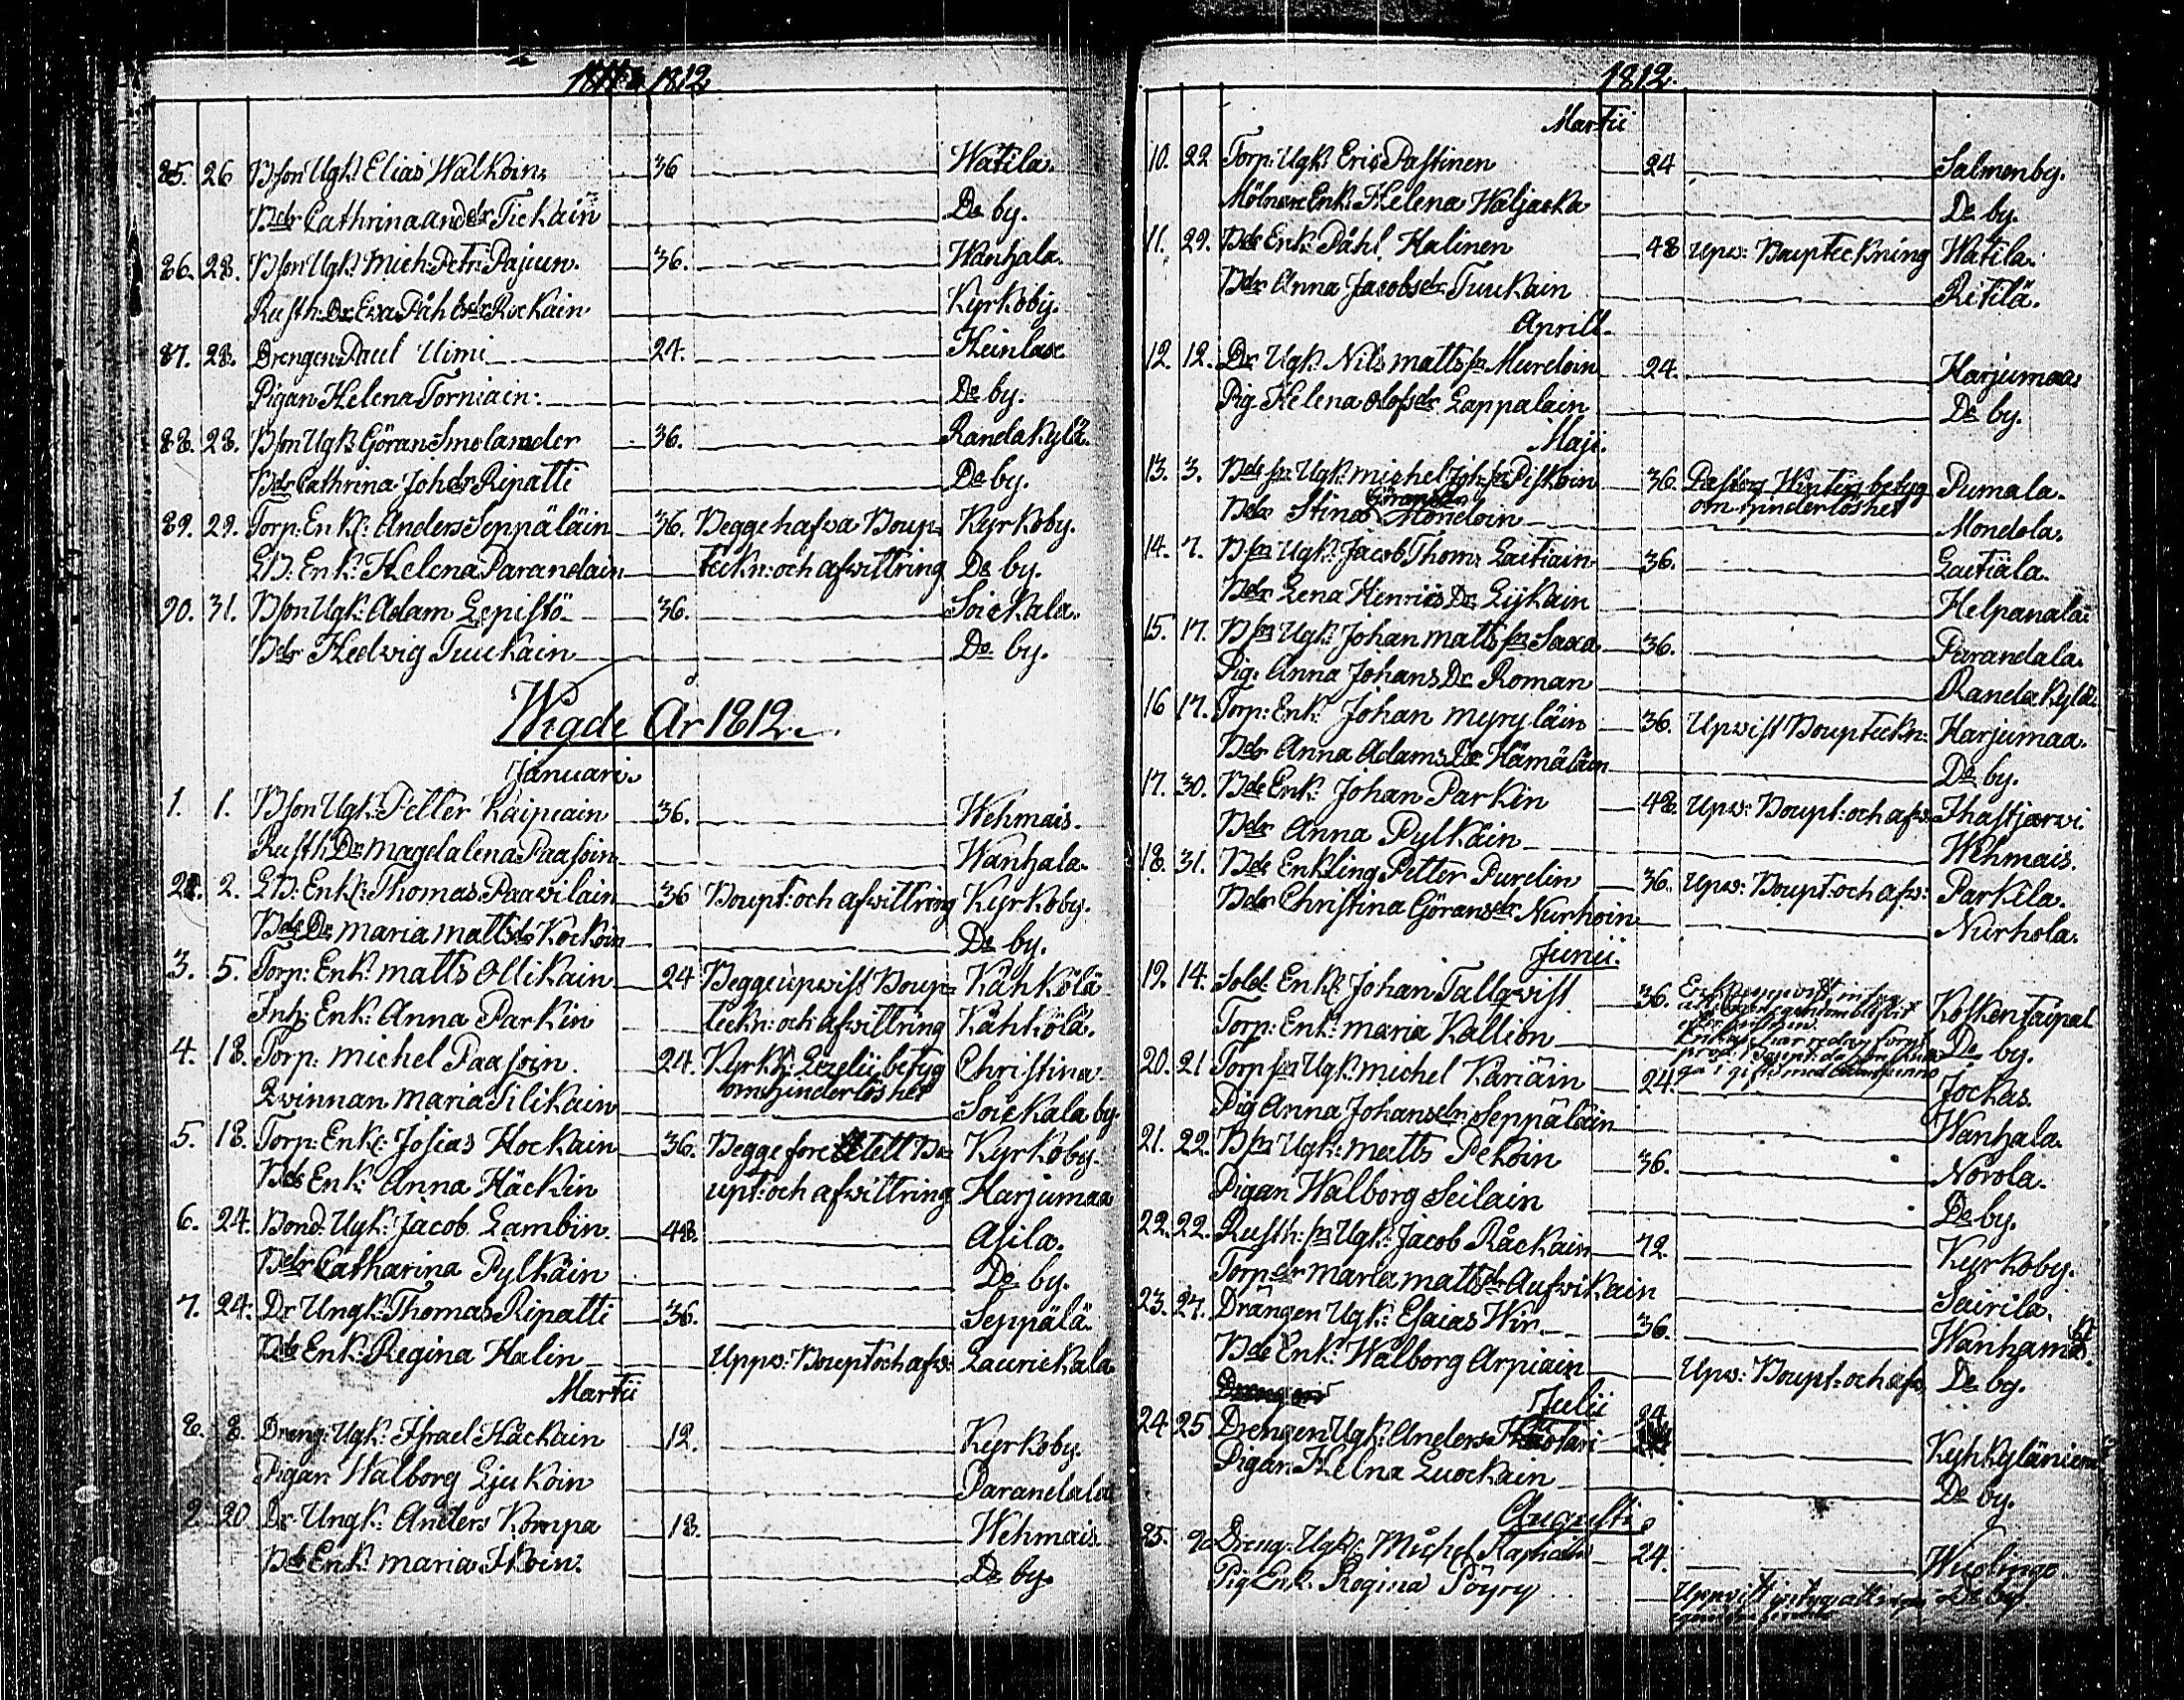 1812.
85. 26 Bson Ugk. Elias Walkoin 36 Watila.
Bdr Cathrina Tickain De by.
86. 28. Bson Ugk. Mich: Petr: Pajun. 36. Wanhala.
Rusth: Dr Eva Påhlsdr Rockain Kyrkoby.
87. 28. Drengen Paul Uimi 24. Heinlax
Pigan Helena Torniain. De by.
88. 28. Bson Ugk. Göran Smolander 36. Randakylä.
Bdr Cathrina Johdr Ripatti De by.
89. 29. Torp: Enkl: Anders Seppäläin 36. Begge hafva Boup= Kyrkoby.
Enk: Helena Parandain teckn: och afvittring De by.
90. 31. Bson Ugk. Adam Lepistö 36. Soickala.
Bdr Hedvig Tuukain De by.
Wigde År 1812.
Januari.
1. 1. Bson Ugk: Petter Kaipiain 36. Wehmais.
Rusth Dr Magdalena Paasoin Wanhala.
2. 2. Enkl: Thomas Paavilain 36 Boupt: och afvittring Kyrkoby.
Bde Dr Maria Mattsdr Kockoin De by.
3. 5. Torp: Enkl. Matts Ollikain 24 Begge upvist Boup= Kähkölä
Inh: Enk: Anna Parkin teckn: och afvittring Kähkölä.
4. 18. Torp: Michel Paasoin. 24. Kyrkh: Lezelii betyg Christina
Qvinnan Maria Silikain om hinderlöshet Soickala by.
5. 18. Torp: Enkl: Josias Hockain 36. Begge foretett Bo= Kyrkoby.
Bde Enk: Anna Häckin upt: och afvittring Harjumaa
6. 24. Bond. Ugk: Jacob Lambin. 48. Asila.
Bdr Catharina Pylkäin De by.
7. 24. Dr Ungk: Thomas Ripatti 36. Seppälä.
Bde Enk: Regina Halin Uppv: Boupt och afv: Laurickala
Martii
8. 8. Dreng: Ugk: Israel Häckain 12. Kyrkoby.
Pigan Walborg Ljukoin Parandala
9. 20 Dr Ungk: Anders Kompa 18. Wehmais.
Bde Enk: Maria Ikoin. De by.
1812.
Martii
10. 22 Torp: Ugk: Eric Pastinen 24 Salmenby.
Mölnare Enk: Helena Waljacka De by.
11. 29. Bde Enk: Påhl Halinen 48 Upv: Boupteckning Watila.
Bdr Anna Jacobsdr Tuukain Ritilä.
Aprill.
12. 12. Dr Ugk: Nils Matts sn Mureloin 24. Harjumaa
Pig. Helena Olofsdr Lappalain De by.
Maji.
13. 3. Bde sn Ugk: Michel Joh: sn Piskoin 36. Pastors betyg Pumala.
Göransdr
Bdr Stina Mondoin om hinderlöshet Mondola.
14. 7. Bsn Ugk: Jacob Thom: Laitiain 36. Laitiala.
Bdr Lena Henrics Dr Lijkain Helpanala
15. 17. Bsn Ugk: Johan Matts sn Saxa 36. Parandala.
Pig. Anna Johans Dr Roman Randakylä.
16 17. Torp: Enkl: Johan Myryläin 36. Upvist Boupteckn: Harjumaa.
Bdr Anna Adams Dr Hämäläin De by.
17. 30. Bde Enkl: Johan Parkin 48. Upv: Boupt: och afv: Ihastjærvi.
Bdr Anna Pylkäin Wehmais.
18. 31. Bde Enkling Petter Purelin 36. Upv: Boupt: och afv: Parkila.
Bdr Christina Göransdr Nurhoin Nurhola.
Junii.
19. 14. Sold: Enkl: Johan Tallqvist 36. Koskentaipal
Torp: Enk: Maria Kallion De by.
20. 21 Torp sn Ugk: Michel Kariäin 24. Jockas.
Pig Anna Johansdr Seppäläin Wanhala.
21. 22. Bsn Ugk: Matts Pekoin 36. Norola.
Pigan Walborg Seilain De by.
22. 22. Rusth: sn Ugk: Jacob Råckain 72. Kyrkoby.
Torp dr Maria Mattsdr Aufvikain Sairila.
23. 27. Drängen Ugk: Esaias Wir 36. Wanhamä
Bde Enk: Walborg Arpiain Upv: Boupt: och afv. De by.
Julii
24. 25 Drengen Ugk: Anders 24 Kyhkyläniemi
Pigan Helna Luockain De by.
Augusti
25. Dreng: Ugk: Michel 24. Wuolingo
Pig Enk. Regina Pöyry De by